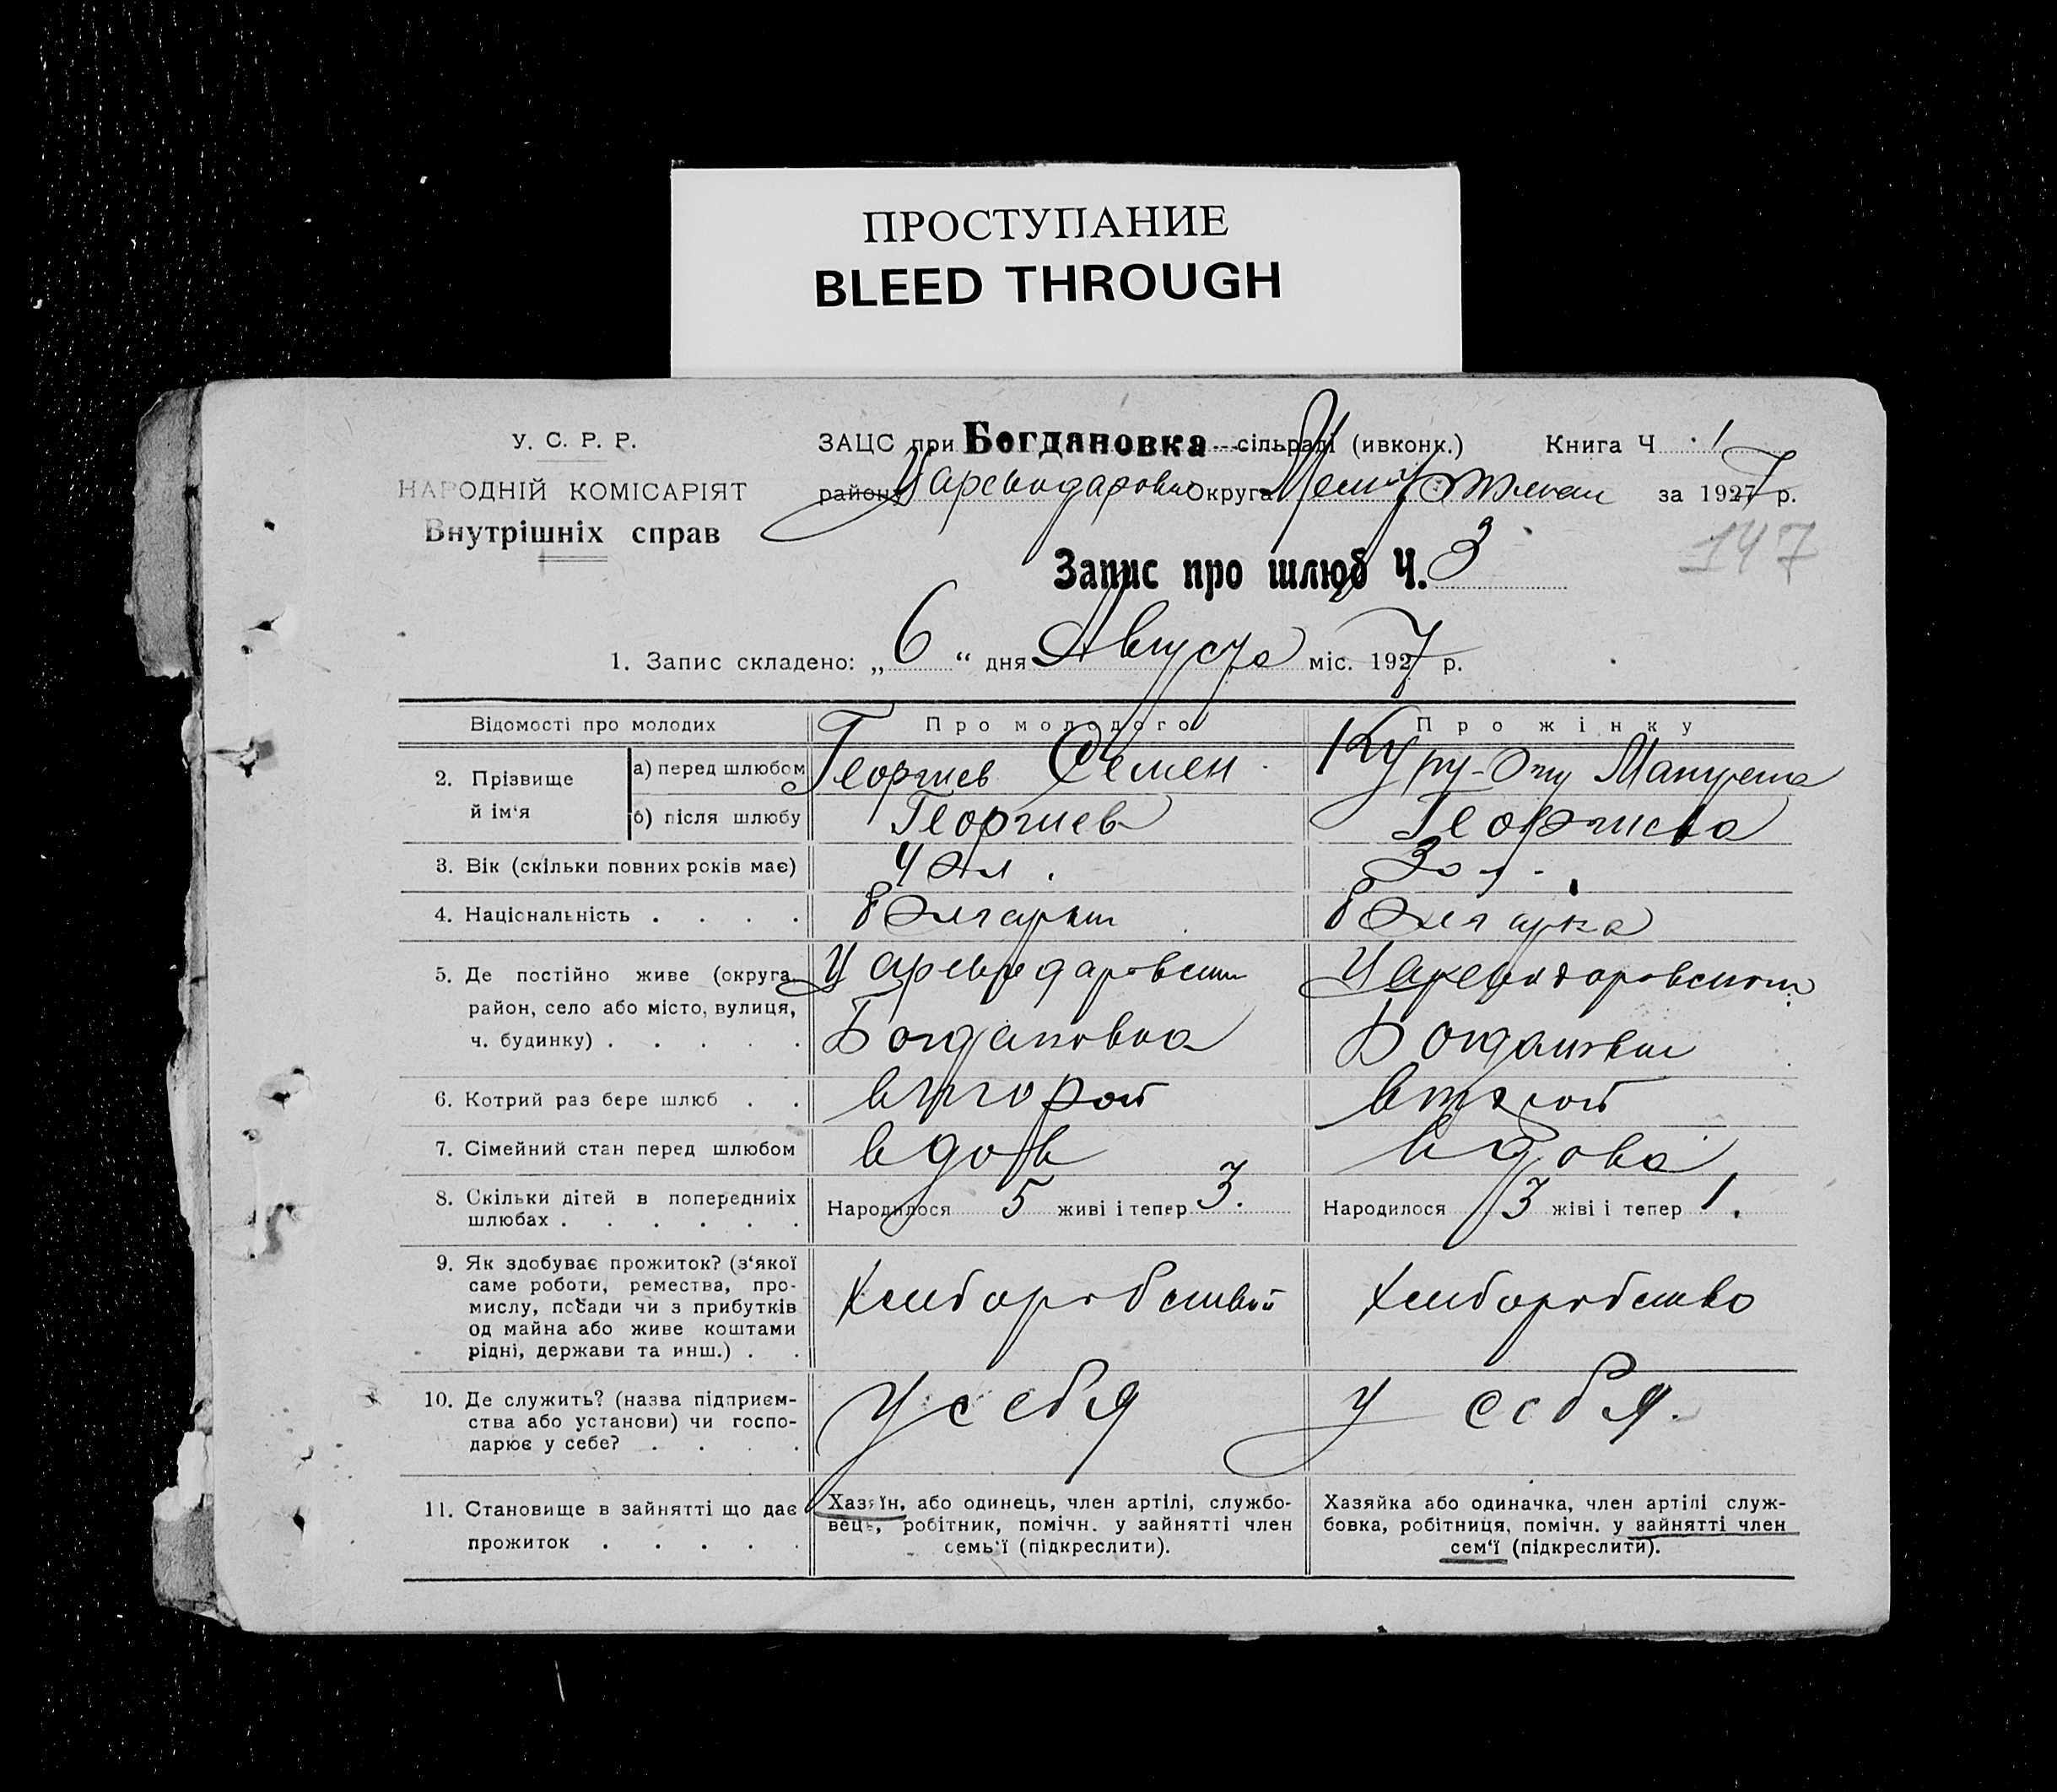 ПРОСТУПАНИЕ
BLEED THROUGH
У. С. Р. Р.
НАРОДНІЙ КОМІСАРІЯТ
Внутрішніх справ
ЗАЦС при Богдановка сільраді (ивконк.) Книга Ч 1
района Округа за 1927 р.
147
Запис про шлюб Ч. 3
1. Запис складено: „ 6 “ дня Августа міс. 1927 р.
Відомості про молодих Про молодого Про жінку
2. Прізвище й ім'я
а) перед шлюбом Георгиев Семен
б) після шлюбу Георгиев Георгиева
3. Вік (скільки повних років має) 30 л.
4. Національність . . . . болгарин болгарка
5. Де постійно живе (округа, Царевдаровский
район, село або місто, вулиця,
ч. будинку) . . . . . Богдановка Богдановка
6. Котрий раз бере шлюб . . второй второй
7. Сімейний стан перед шлюбом вдов вдова
8. Скільки дітей в попередниіх
шлюбах . . . . . . Народилося 5 живі і тепер 3. Народилося 3 жіві і тепер 1.
9. Як здобуває прожиток? (з'якої
саме роботи, ремества, про-
мислу, посади чи з прибутків
од майна або живе коштами
рідні, держави та инш.) . . хлеборобство
10. Де служить? (назва підприєм-
ства або установи) чи госпо-
дарює у себе? . . . . у себя у себя.
11. Становище в зайнятті що дає
прожиток . . . . .
Хазяїн, або одинець, член артілі, службо-
вець, робітник, помічн. у зайнятті член
семь'ї (підкреслити).
Хазяйка або одиначка, член артілі служ-
бовка, робітниця, помічн. у зайнятті член
сем'ї (підкреслити).